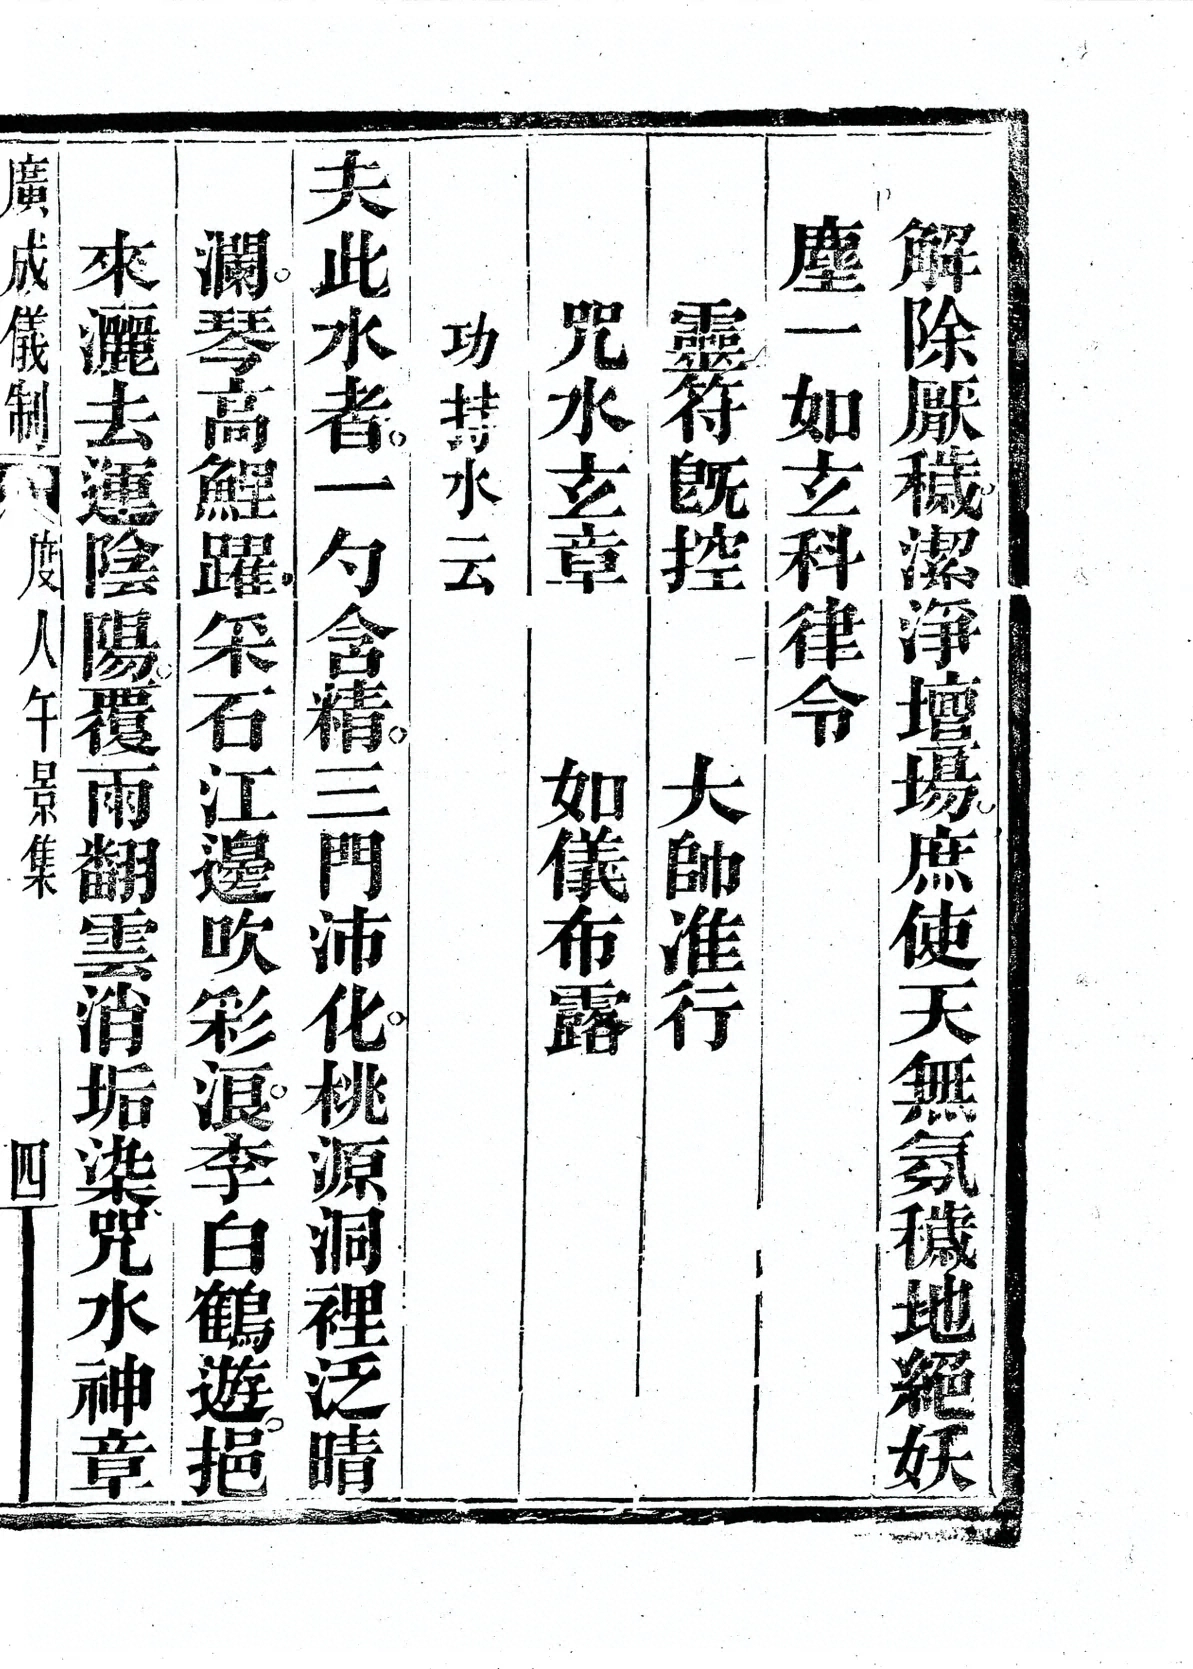 解除厭穢。潔淨壇場。庶使天無氛穢地絕妖
塵一如玄科律令
靈符既控　大帥准行
咒水玄章　如儀布露
功持水云
夫此水者。一勺含精。三門沛化。桃源洞裡泛晴
瀾。琴高鯉躍。采石江邊吹彩浪。李白鶴遊。挹
來灑去運陰陽。覆雨翻雲消垢染咒水神章
廣成儀制　度人午景集　四